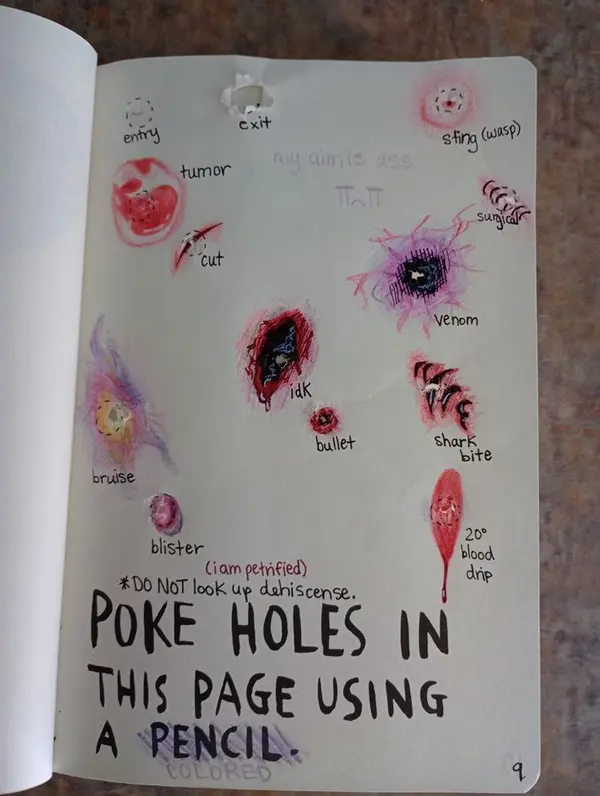 entry
exit
sting (wasp)
tumor
my aim is ass
surgical
cut
venom
idk
bullet
shark
bite
bruise
blister
20°
blood
drip
(i am petrified)
*DO NOT look up dehiscense.
POKE HOLES IN
THIS PAGE USING
A PENCIL.
COLORED
9